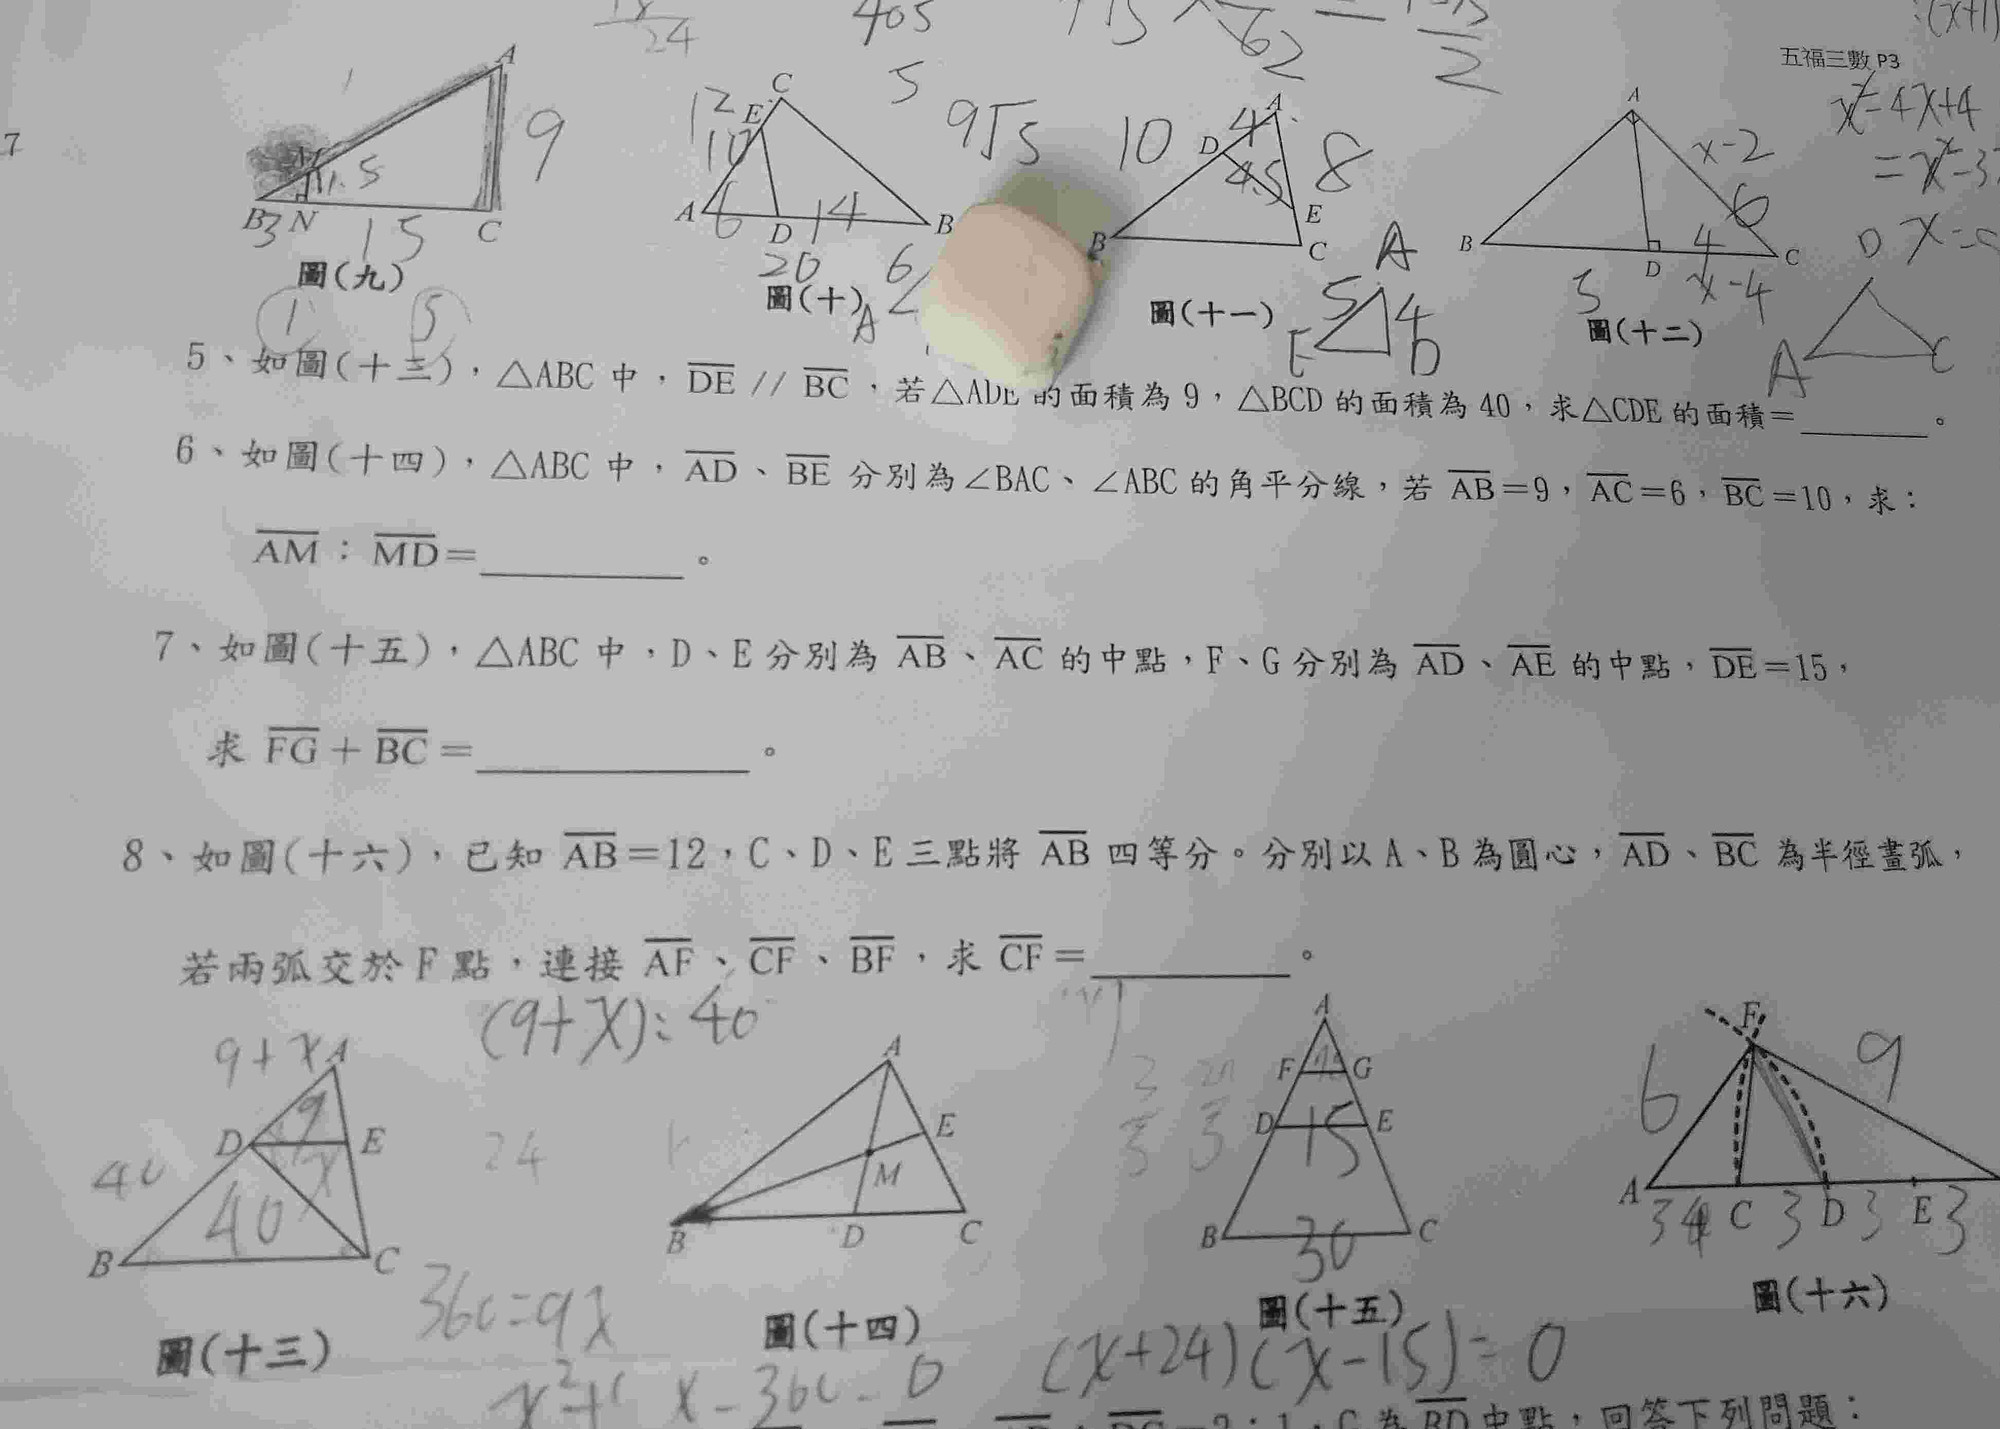 24
405
5
62
2
(x+1)
五福三數 P3
7
A
9
1.5
B 3 N 15 C
圖(九)
1 5
12 C
E
10
A 6 D 14 B
20 6
圖(十)
A
9√5
10
A
4
D
4.5
8
E
B C
圖(十一)
A
5 4
E D
A
x-2
6
B D 4 C
5 x-4
圖(十二)
x²-4x+4
=x²-3
A C
5、如圖(十三)，△ABC 中，DE // BC，若△ADE 的面積為 9，△BCD 的面積為 40，求△CDE 的面積=______。
6、如圖(十四)，△ABC 中，AD、BE 分別為∠BAC、∠ABC 的角平分線，若 AB=9，AC=6，BC=10，求：
AM：MD=______。
7、如圖(十五)，△ABC 中，D、E 分別為 AB、AC 的中點，F、G 分別為 AD、AE 的中點，DE=15，
求 FG+BC=______。
8、如圖(十六)，已知 AB=12，C、D、E 三點將 AB 四等分。分別以 A、B 為圓心，AD、BC 為半徑畫弧，
若兩弧交於 F 點，連接 AF、CF、BF，求 CF=______。
(9+x):40
9+x A
9
D E
40 x
40
B C
圖(十三)
24
A
E
M
B D C
圖(十四)
A
F G
D 15 E
B 30 C
圖(十五)
F
6 9
A 3 C 3 D 3 E 3
圖(十六)
360=9x
(x+24)(x-15)=0
x - 360 = 0
BD 中點，回答下列問題：